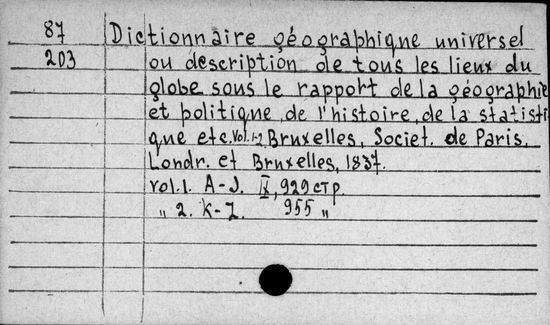 87 Dictionnaire géographique universel
203 ou description de tous les lieux du
globe sous le rapport de la géographie
et politique, de l'histoire, de la statisti
que etc. Vol.1-2, Bruxelles, Societ. de Paris.
Londr. et Bruxelles, 1837.
vol.1. A-J. IX, 929 стр.
„ 2. K-Z. 955 „